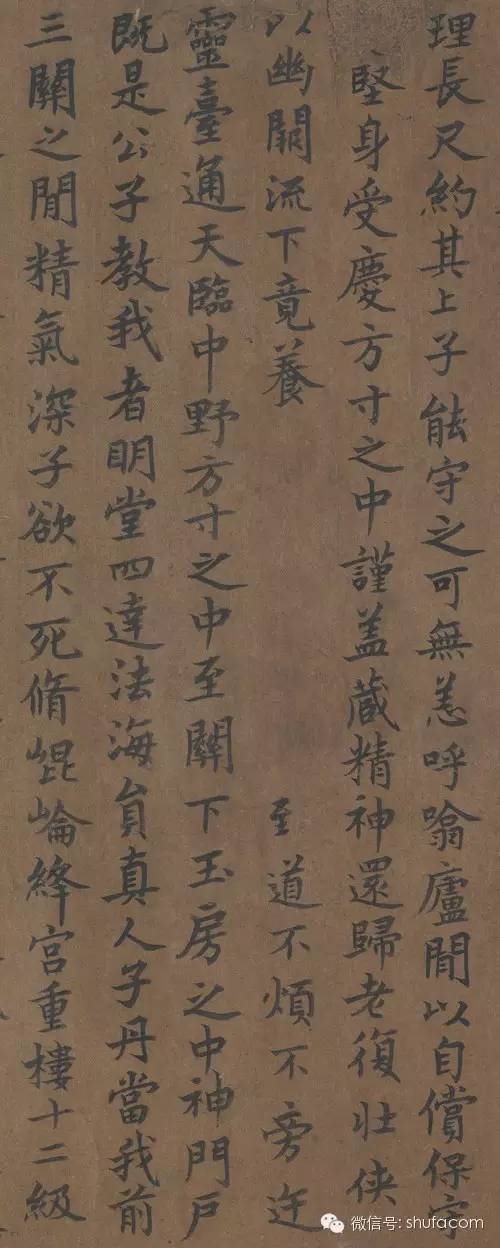 理長尺約其上子能守之可無恙呼噏廬間以自償保守
堅身受慶方寸之中謹盖藏精神還歸老復壯俠
以幽闕流下竟養 至道不煩不旁迕
靈臺通天臨中野方寸之中至關下玉房之中神門戶
既是公子教我者明堂四達法海貟真人子丹當我前
三關之間精氣深子欲不死脩崐崘絳宮重樓十二級
微信号: shufacom